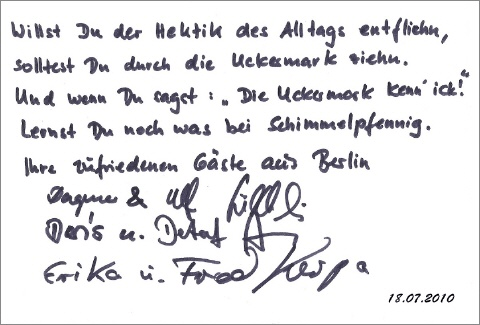 Willst Du der Hektik des Alltags entfliehn,
solltest Du durch die Uckermark ziehn.
Und wenn Du sagst: „Die Uckermark kenn' ick!"
Lernst Du noch was bei Schimmelpfennig.
Ihre zufriedenen Gäste aus Berlin
Dagmar &
Doris u. Detlef
Erika u.
18.07.2010